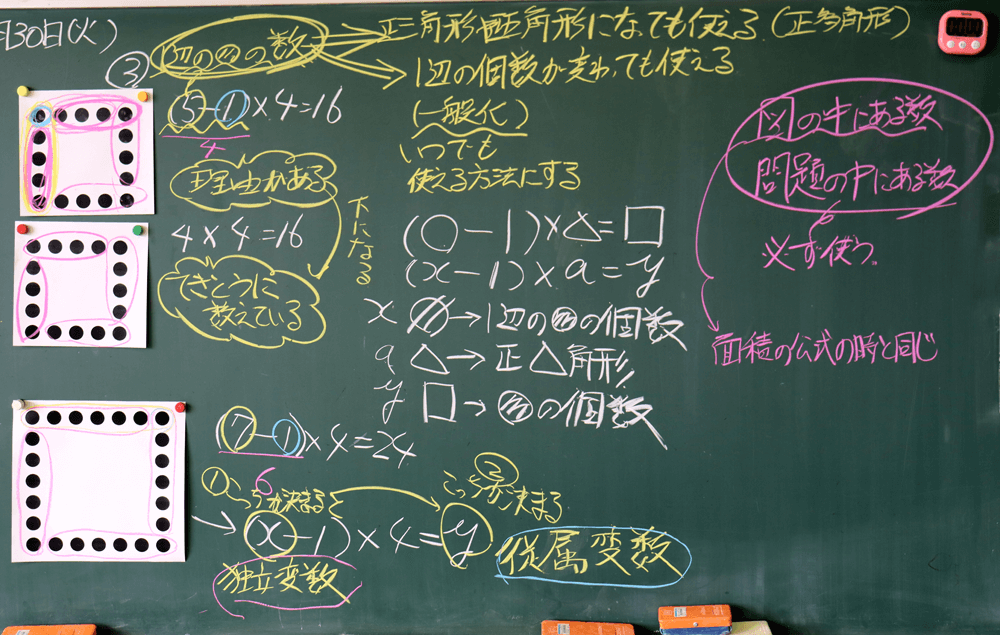 月30日(火)
③ 1辺の●の数
正三角形正五角形になっても使える (正多角形)
1辺の個数が変わっても使える
(一般化)
いつでも
使える方法にする
(5-1)×4=16
4
理由がある
4×4=16
てきとうに
数えている
(○-1)×△=□
(x-1)×a=y
x ○→1辺の●の個数
a △→正△角形
y □→●の個数
図の中にある数
問題の中にある数
必ず使う。
面積の公式の時と同じ
(7-1)×4=24
6
①こっちが決まると
②こっちが決まる
(x-1)×4=y
独立変数
従属変数